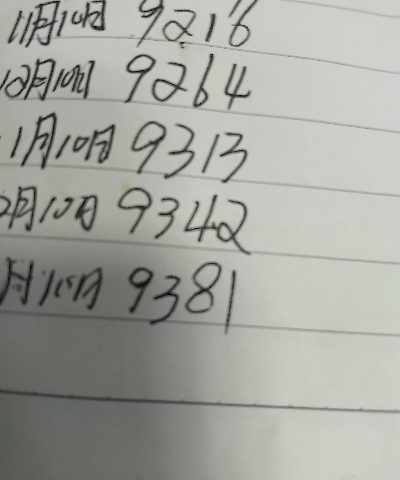 11月10日 9216
12月10日 9264
1月10日 9313
2月10日 9342
月10日 9381